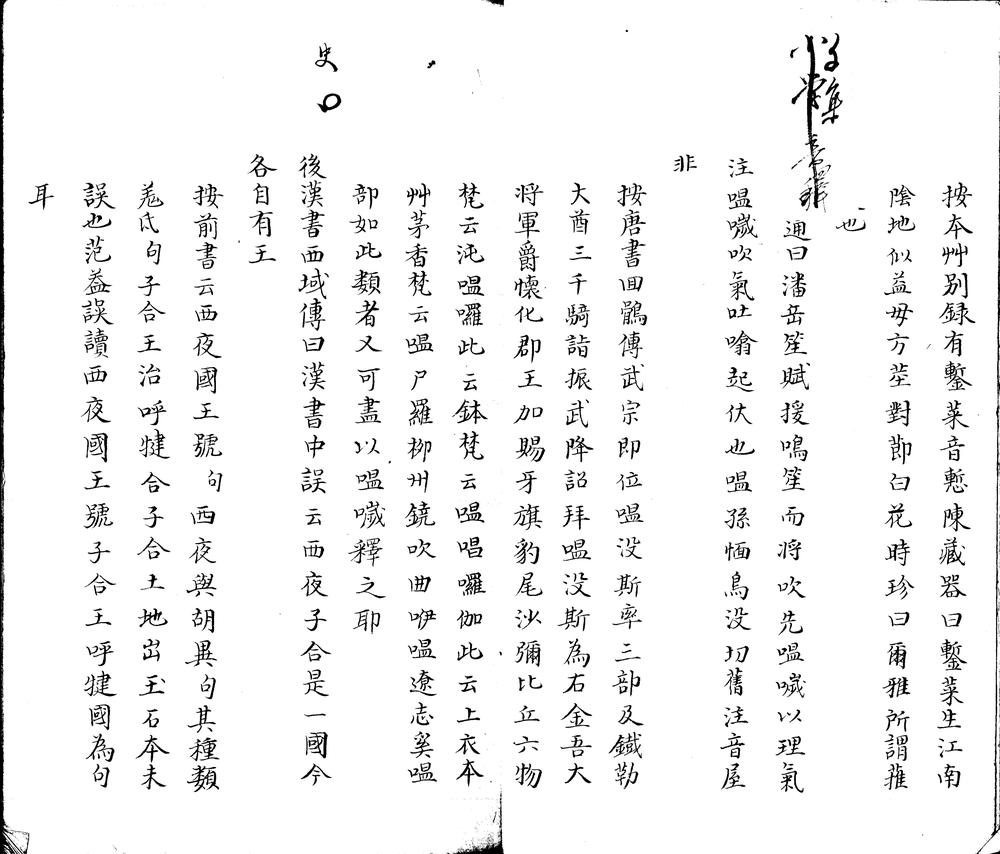 按本艸別録有鏨菜音慙陳藏器曰鏨菜生江南
陰地似益毋方莖對節白花時珍曰爾雅所謂蓷
也
通曰潘岳笙賦援鳴笙而將吹先嗢噦以理氣
注嗢噦吹氣吐噏起伏也嗢孫愐烏没切舊注音屋
非
按唐書回鶻傳武宗即位嗢没斯率三部及鐵勒
大酋三千騎詣振武降詔拜嗢没斯為右金吾大
将軍爵懷化郡王加賜牙旗豹尾沙彌比丘六物
梵云沌嗢囉此云鉢梵云嗢唱囉伽此云上衣本
艸茅香梵云嗢尸羅柳州鐃吹曲咿嗢遼志奚嗢
部如此類者又可盡以嗢噦釋之耶
史
後漢書西域傳曰漢書中誤云西夜子合是一國今
各自有王
按前書云西夜國王號句西夜與胡異句其種類
羌氐句子合王治呼犍合子合土地岀玉石本未
誤也范益誤讀西夜國王號子合王呼犍國為句
耳